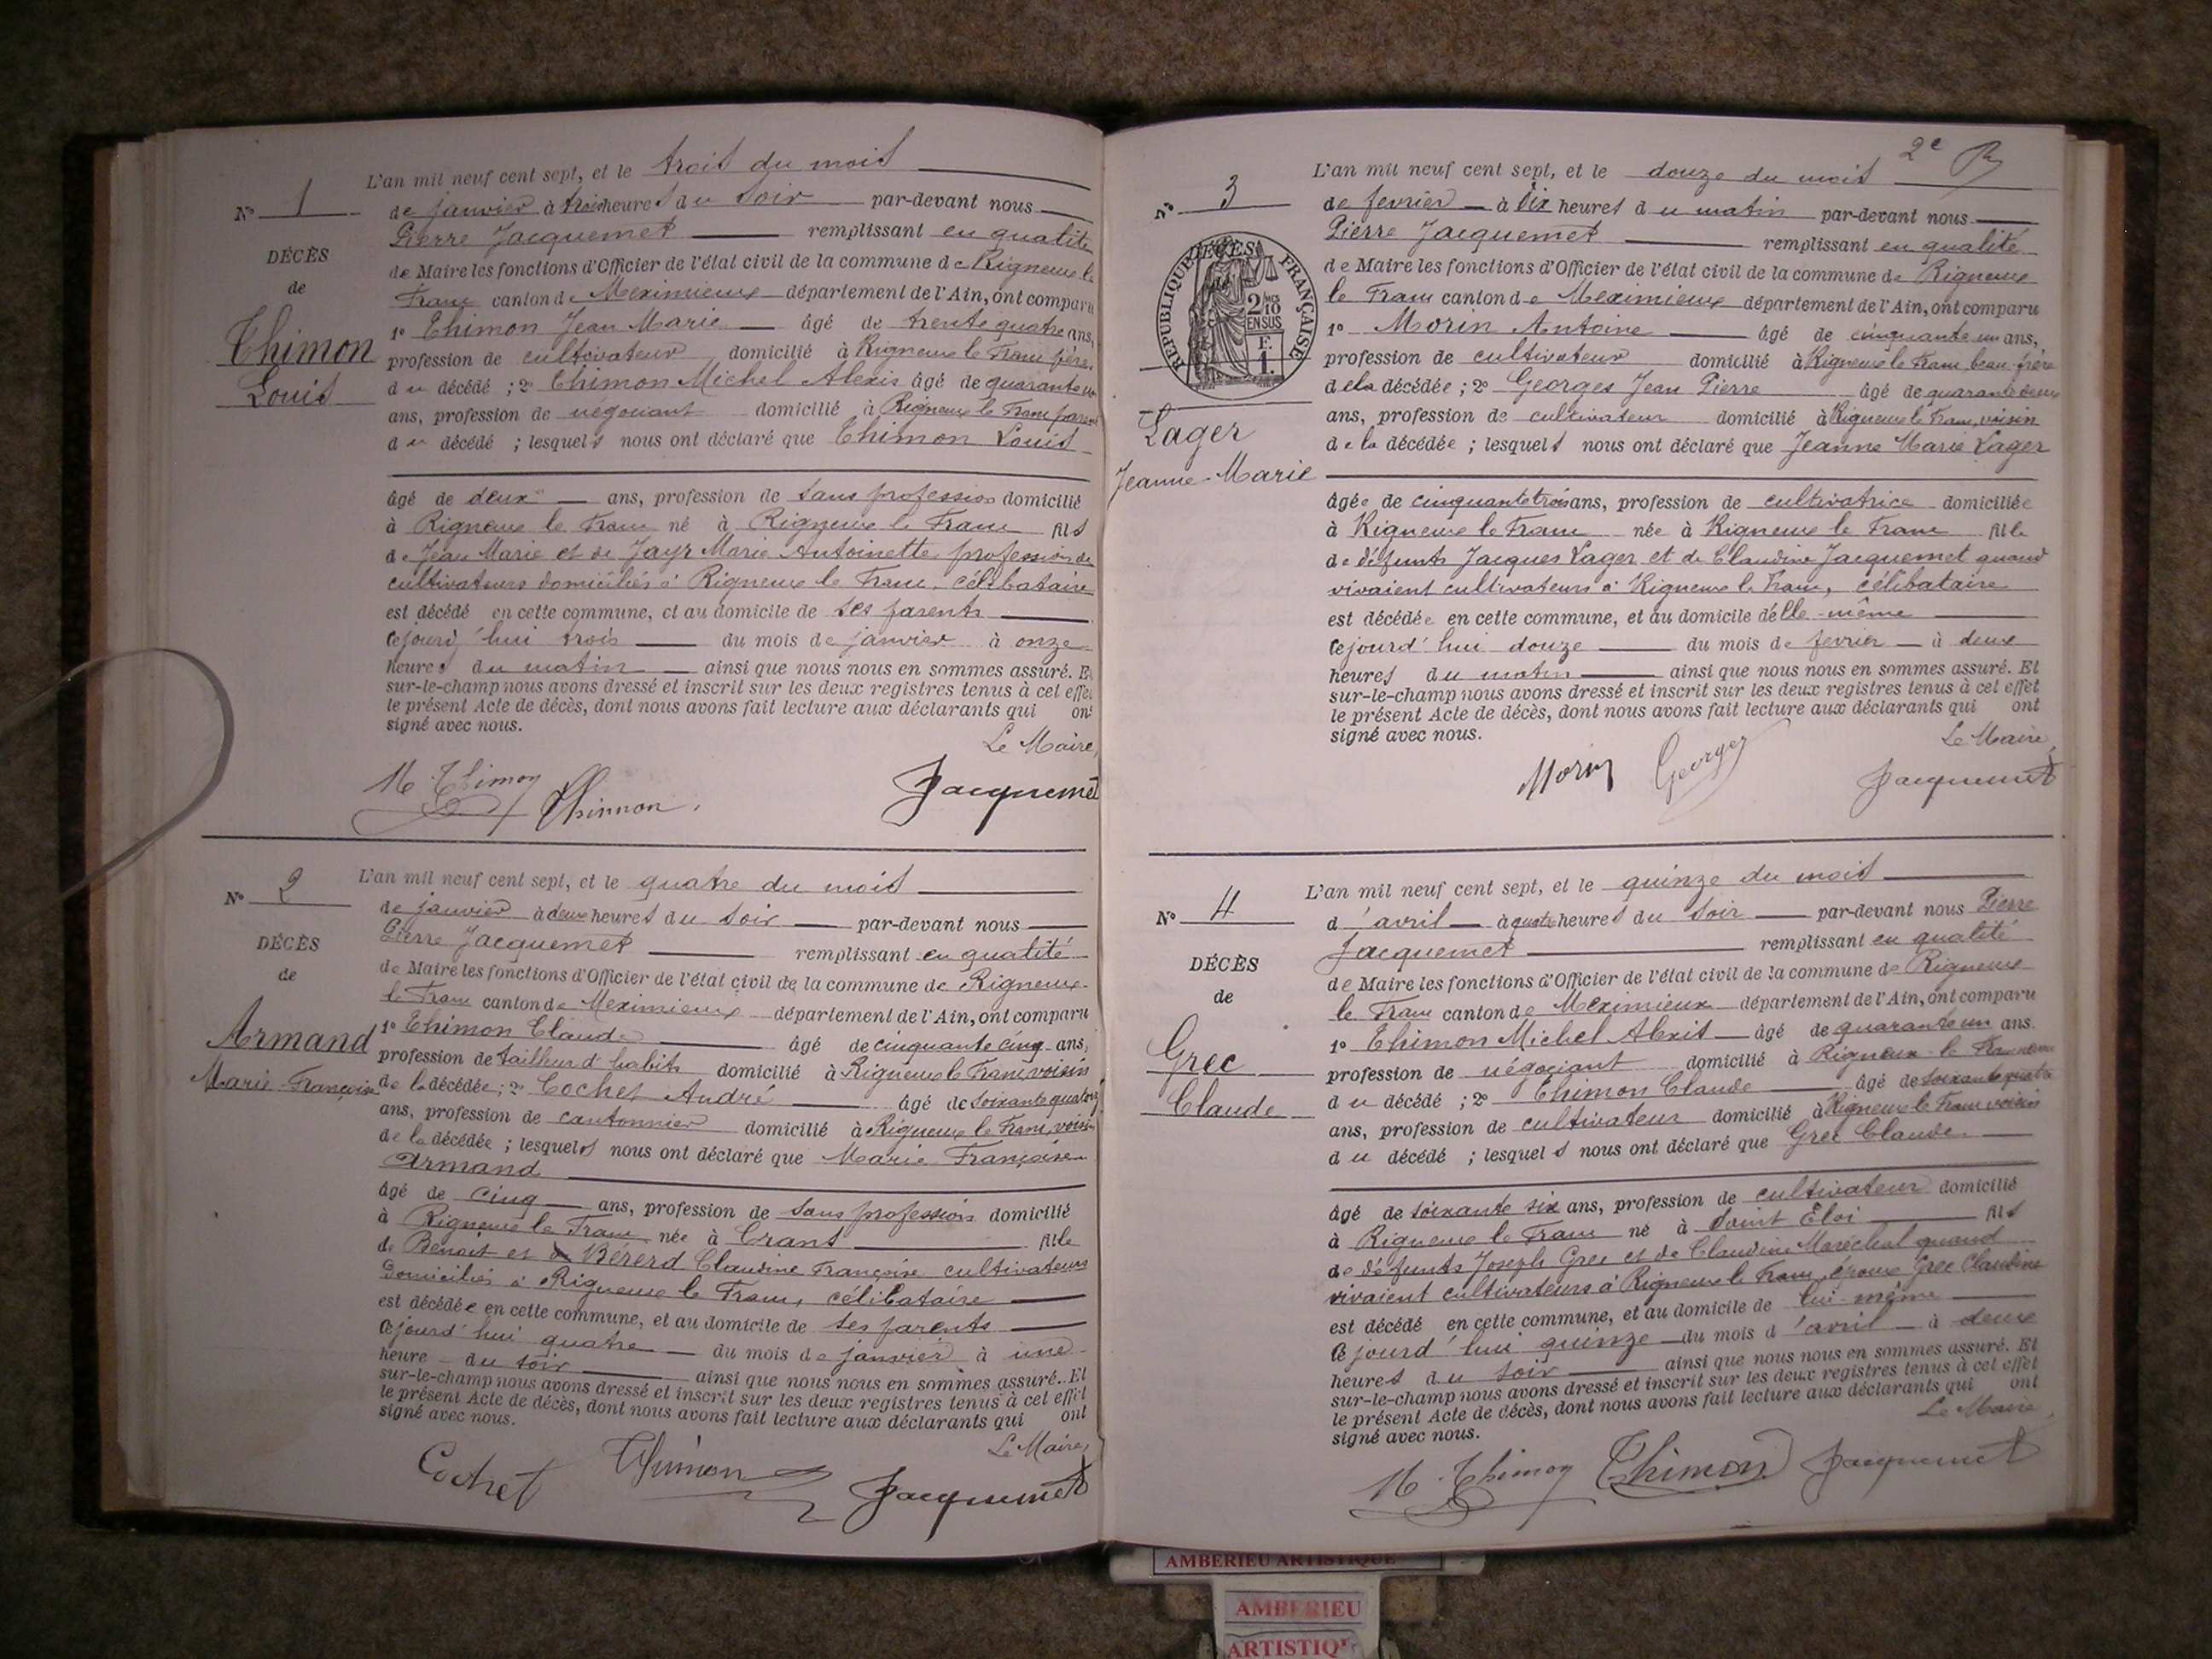 L'an mil neuf cent sept, et le trois du mois
N° 1
de janvier à trois heures du soir par-devant nous
Pierre Jacquemet remplissant en qualité
DÉCÈS
de Maire les fonctions d'Officier de l'état civil de la commune de Rigneux le
de
Franc canton de Meximieux département de l'Ain, ont comparu
Thimon
Louis
1° Thimon Jean Marie âgé de trente quatre ans,
profession de cultivateur domicilié à Rigneux le Franc père
du décédé ; 2° Thimon Michel Alexis âgé de quarante un
ans, profession de négociant domicilié à Rigneux le Franc parent
du décédé ; lesquels nous ont déclaré que Thimon Louis
âgé de deux ans, profession de sans profession domicilié
à Rigneux le Franc né à Rigneux le Franc fils
de Jean Marie et de Jayr Marie Antoinette profession de
cultivateurs domiciliés à Rigneux le Franc, célibataire
est décédé en cette commune, et au domicile de ses parents
cejourd'hui trois du mois de janvier à onze
heures du matin ainsi que nous nous en sommes assuré. Et
sur-le-champ nous avons dressé et inscrit sur les deux registres tenus à cet effet
le présent Acte de décès, dont nous avons fait lecture aux déclarants qui ont
signé avec nous.
Le Maire,
M. Thimon Thimon Jacquemet
L'an mil neuf cent sept, et le quatre du mois
N° 2
de janvier à deux heures du soir par-devant nous
Pierre Jacquemet remplissant en qualité
DÉCÈS
de Maire les fonctions d'Officier de l'état civil de la commune de Rigneux
de
le Franc canton de Meximieux département de l'Ain, ont comparu
Armand
Marie-Françoise
1° Thimon Claude âgé de cinquante cinq ans,
profession de tailleur d'habits domicilié à Rigneux le Franc, voisin
de la décédée ; 2° Cochet André âgé de soixante quatorze
ans, profession de cantonnier domicilié à Rigneux le Franc, voisin
de la décédée ; lesquels nous ont déclaré que Marie Françoise
Armand
âgé de cinq ans, profession de sans profession domicilié
à Rigneux le Franc née à Crans fille
de Benoit et de Bérerd Claudine Françoise cultivateurs
domiciliés à Rigneux le Franc, célibataire
est décédée en cette commune, et au domicile de ses parents
cejourd'hui quatre du mois de janvier à une
heure du soir ainsi que nous nous en sommes assuré. Et
sur-le-champ nous avons dressé et inscrit sur les deux registres tenus à cet effet
le présent Acte de décès, dont nous avons fait lecture aux déclarants qui ont
signé avec nous.
Le Maire,
Cochet Thimon Jacquemet
2e
L'an mil neuf cent sept, et le douze du mois
N° 3
de fevrier à dix heures du matin par-devant nous
Pierre Jacquemet remplissant en qualité
de Maire les fonctions d'Officier de l'état civil de la commune de Rigneux
le Franc canton de Meximieux département de l'Ain, ont comparu
DÉCÈS
RÉPUBLIQUE FRANÇAISE
2/10
EN SUS
F.
1.
Lager
Jeanne-Marie
1° Morin Antoine âgé de cinquante un ans,
profession de cultivateur domicilié à Rigneux le Franc beau-frère
de la décédée ; 2° Georges Jean Pierre âgé de quarante deux
ans, profession de cultivateur domicilié à Rigneux le Franc, voisin
de la décédée ; lesquels nous ont déclaré que Jeanne Marie Lager
âgée de cinquante trois ans, profession de cultivatrice domiciliée
à Rigneux le Franc née à Rigneux le Franc fille
de défunts Jacques Lager et de Claudine Jacquemet quand
vivaient cultivateurs à Rigneux le Franc, célibataire
est décédée en cette commune, et au domicile d'elle-même
cejourd'hui douze du mois de fevrier à deux
heures du matin ainsi que nous nous en sommes assuré. Et
sur-le-champ nous avons dressé et inscrit sur les deux registres tenus à cet effet
le présent Acte de décès, dont nous avons fait lecture aux déclarants qui ont
signé avec nous.
Le Maire,
Morin Georges Jacquemet
L'an mil neuf cent sept, et le quinze du mois
N° 4
d'avril à quatre heures du soir par-devant nous Pierre
Jacquemet remplissant en qualité
DÉCÈS
de Maire les fonctions d'Officier de l'état civil de la commune de Rigneux
de
le Franc canton de Meximieux département de l'Ain, ont comparu
Grec
Claude
1° Thimon Michel Alexis âgé de quarante un ans.
profession de négociant domicilié à Rigneux le Franc
du décédé ; 2° Thimon Claude âgé de soixante quatre
ans, profession de cultivateur domicilié à Rigneux le Franc voisin
du décédé ; lesquels nous ont déclaré que Grec Claude
âgé de soixante six ans, profession de cultivateur domicilié
à Rigneux le Franc né à Saint Eloi fils
de défunts Joseph Grec et de Claudine Maréchal quand
vivaient cultivateurs à Rigneux le Franc, époux Grec Claudine
est décédé en cette commune, et au domicile de lui-même
Cejourd'hui quinze du mois d'avril à deux
heures du soir ainsi que nous nous en sommes assuré. Et
sur-le-champ nous avons dressé et inscrit sur les deux registres tenus à cet effet
le présent Acte de décès, dont nous avons fait lecture aux déclarants qui ont
signé avec nous.
Le Maire,
M. Thimon Thimon Jacquemet
AMBERIEU ARTISTIQUE
AMBERIEU
ARTISTIQU